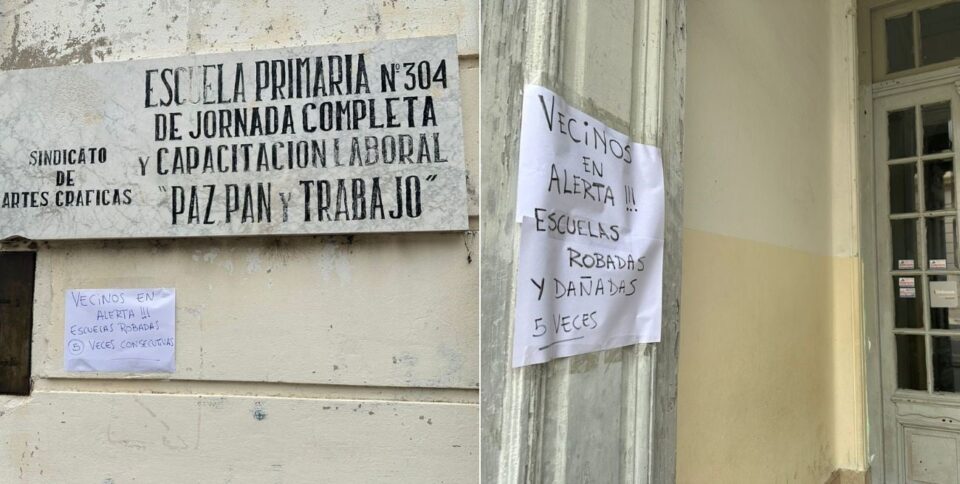 ESCUELA PRIMARIA Nº304
DE JORNADA COMPLETA
Y CAPACITACION LABORAL
"PAZ, PAN Y TRABAJO"
SINDICATO
DE
ARTES GRAFICAS
VECINOS EN
ALERTA !!!
ESCUELAS ROBADAS
5 VECES CONSECUTIVAS
VECINOS
EN
ALERTA !!!
ESCUELAS
ROBADAS
Y DAÑADAS
5 VECES